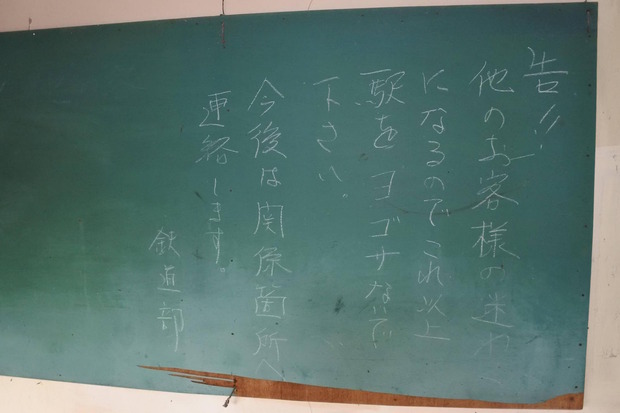 告!!
他のお客様の迷わ
になるのでこれ以上
駅を ヨゴサないで
下さい。
今後は関係箇所へ
連絡します。
鉄道部